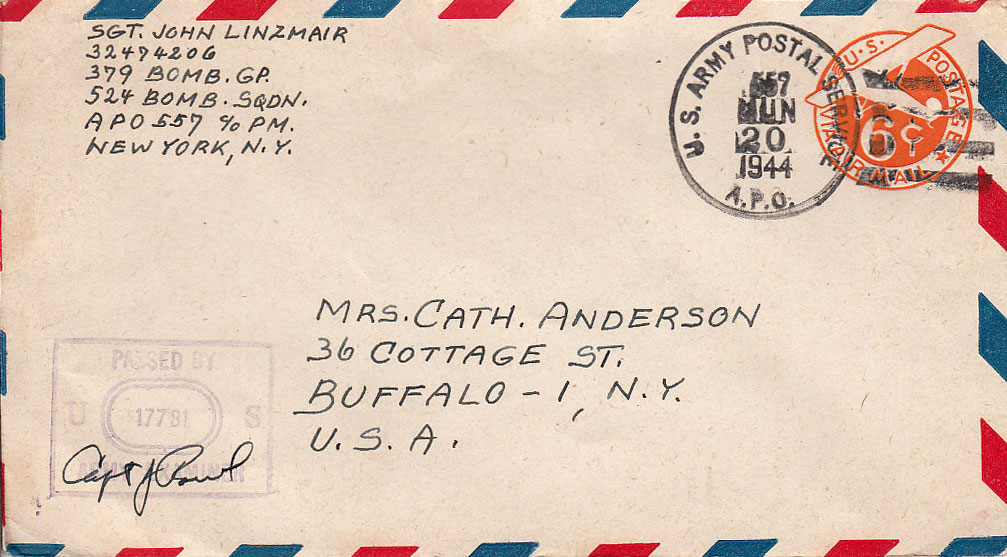 SGT. JOHN LINZMAIR
32474206
379 BOMB. GP.
524 BOMB. SQDN.
APO 557 % PM.
NEW YORK, N.Y.
U.S. ARMY POSTAL SERVICE
557
JUN
20
1944
A.P.O.
U.S. POSTAGE
6¢
VIA AIR MAIL
MRS. CATH. ANDERSON
36 COTTAGE ST.
BUFFALO - 1, N.Y.
U.S.A.
PASSED BY
U 17781 S
ARMY EXAMINER
Capt J